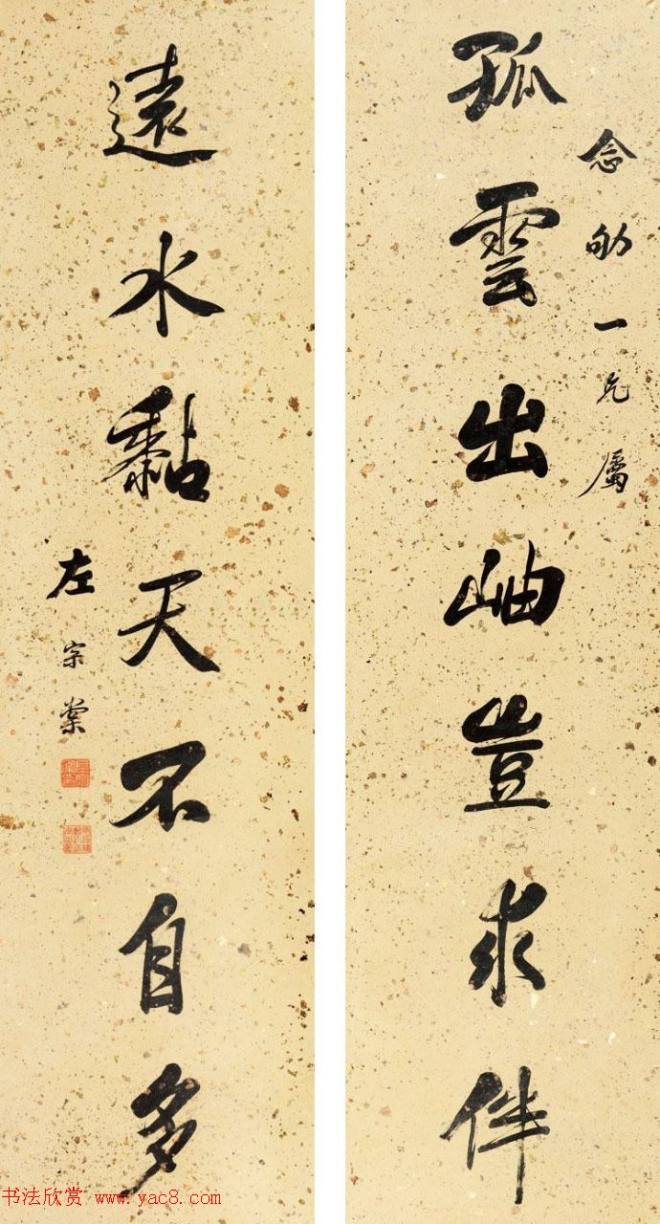 念劬一兄屬
孤雲出岫豈求伴
遠水黏天不自多
左宗棠
书法欣赏 www.yac8.com